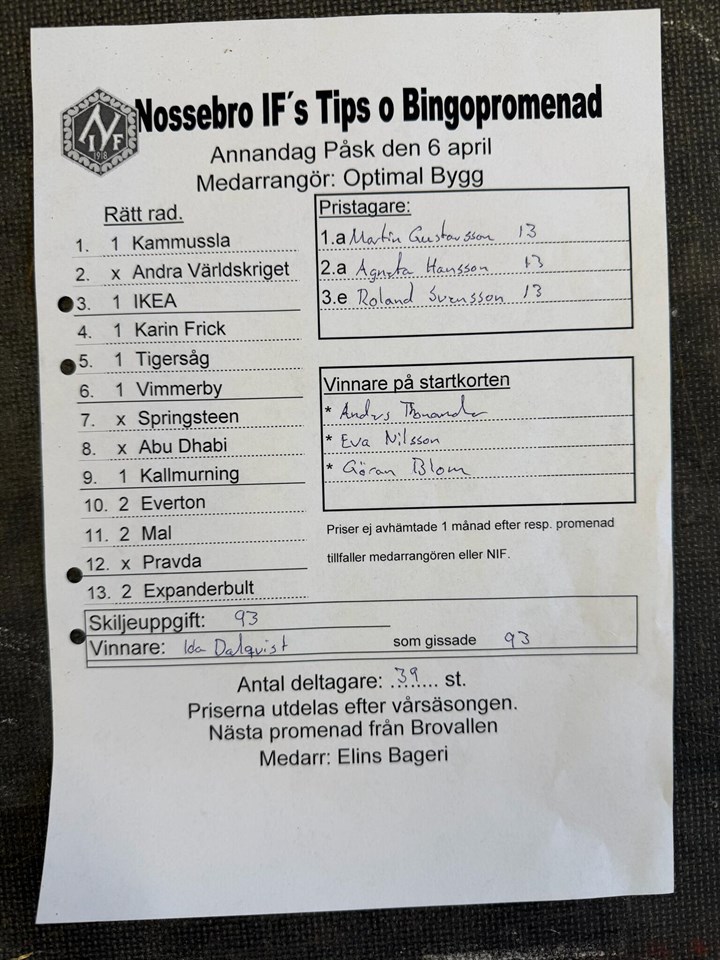 Nossebro IF´s Tips o Bingopromenad
NIF
1918
Annandag Påsk den 6 april
Medarrangör: Optimal Bygg
Rätt rad.
1. 1 Kammussla
2. x Andra Världskriget
3. 1 IKEA
4. 1 Karin Frick
5. 1 Tigersåg
6. 1 Vimmerby
7. x Springsteen
8. x Abu Dhabi
9. 1 Kallmurning
10. 2 Everton
11. 2 Mal
12. x Pravda
13. 2 Expanderbult
Pristagare:
1.a Martin Gustavsson 13
2.a Agneta Hansson 13
3.e Roland Svensson 13
Vinnare på startkorten
* Anders
* Eva Nilsson
* Göran Blom
Priser ej avhämtade 1 månad efter resp. promenad
tillfaller medarrangören eller NIF.
Skiljeuppgift: 93
Vinnare: Ida Dalqvist som gissade 93
Antal deltagare: 39 st.
Priserna utdelas efter vårsäsongen.
Nästa promenad från Brovallen
Medarr: Elins Bageri